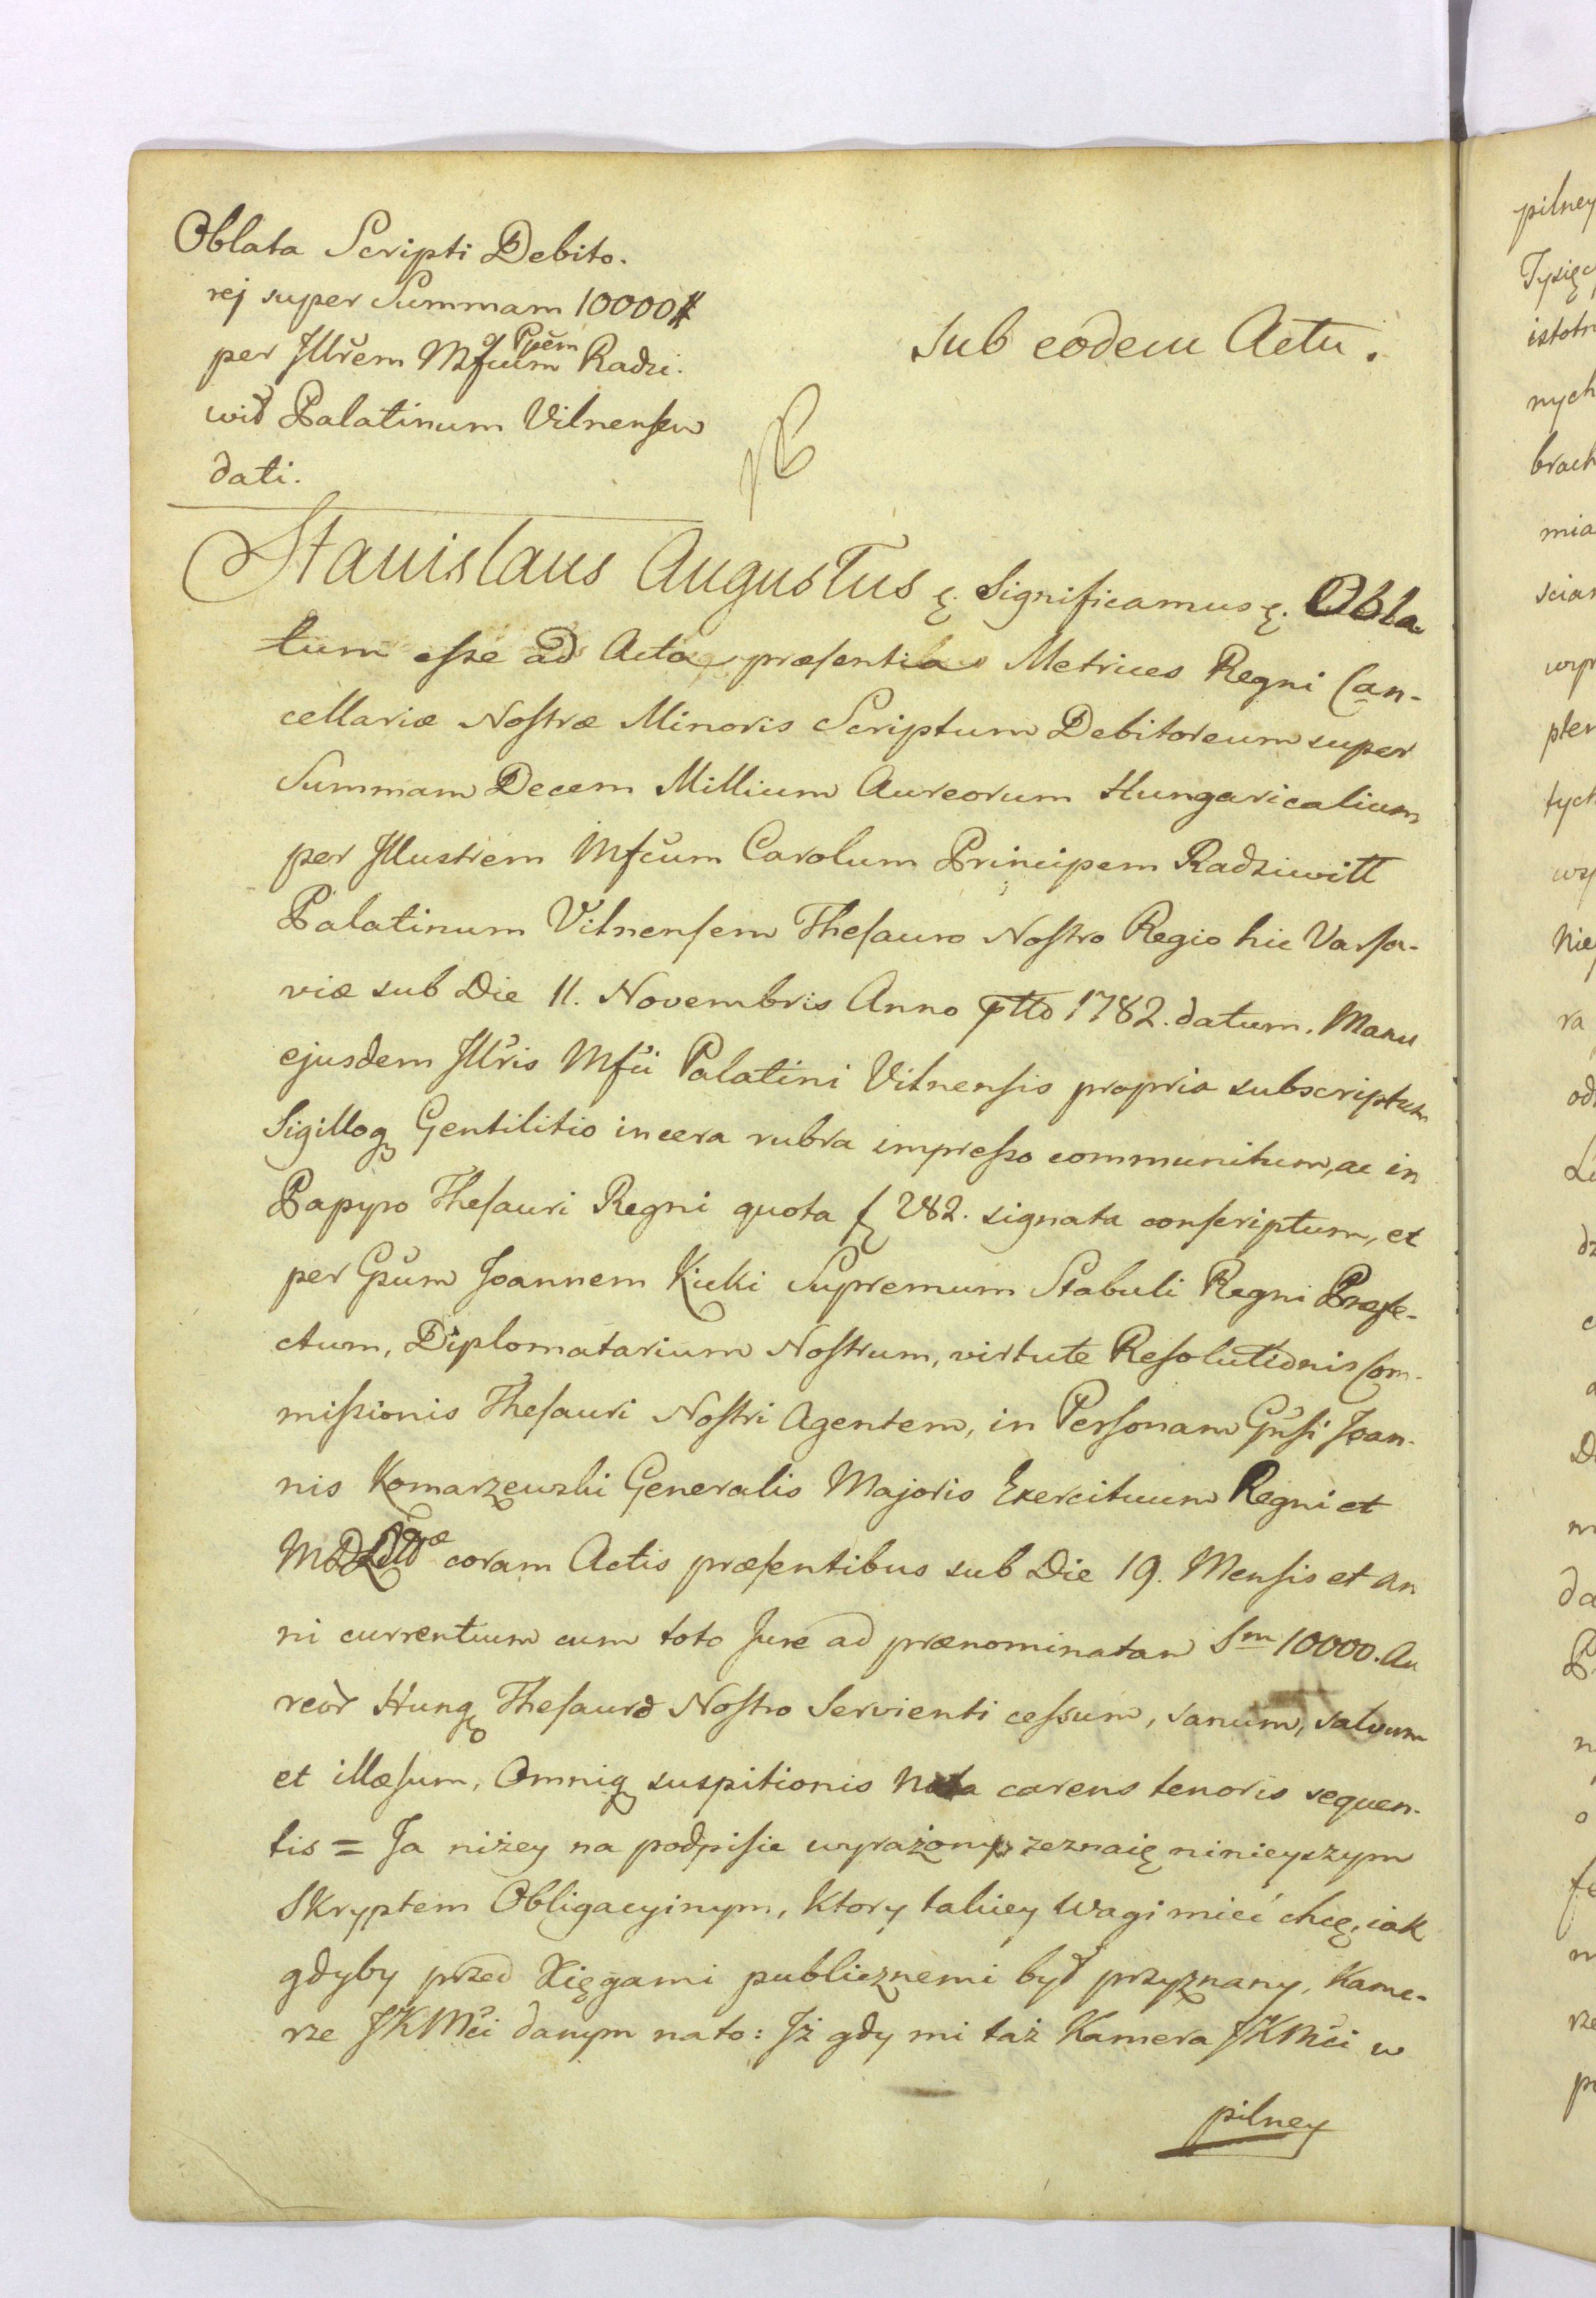 Oblata Scripti Debito-
rej super Summam 10000 #
per Jllrem Mfcum Ppem Radzi-
wił Palatinum Vilnensem
dati.
Sub eodem Actu.
Stanislaus Augustus ę. Significamus ę. Obla-
tum esse ad Acta præsentia Metrices Regni Can-
cellariæ Nostræ Minoris Scriptum Debitoreum super
Summam Decem Millium Aureorum Hungaricalium
per Jllustrem Mfcum Carolum Principem Radziwiłł
Palatinum Vilnensem Thesauro Nostro Regio hic Varsa-
viæ sub Die 11. Novembris Anno ptto 1782. datum. Manu
ejusdem Jllris Mfci Palatini Vilnensis propria subscriptum
Sigilloq Gentilitio in cera rubra impresso communitum, ac in
Papyro Thesauri Regni quota 282. signata conscriptum, et
per Gsum Joannem Kicki Supremum Stabuli Regni Præfe-
ctum, Diplomatarium Nostrum, virtute Resolutionis Com-
missionis Thesauri Nostri Agentem, in Personam Gnsi Joan-
nis Komarzewski Generalis Majoris Exercituum Regni et
MDLittæ coram Actis præsentibus sub Die 19. Mensis et An
ni currentium cum toto Jure ad prænominatam Sm 10000. Au
reor Hung Thesauro Nostro Servienti cessum, sanum, salvum
et illæsum, Omniq suspitionis Nota carens tenoris sequen-
tis = Ja niżey na podpisie wyrażony zeznaię ninieyszym
Skryptem Obligacyinym, ktory takiey Wagi mieć chcę, iak
gdyby przed Xięgami publicznemi był przyznany, Kame-
rze JKMci danym na to: Jż gdy mi taż Kamera JKMci w
pilney